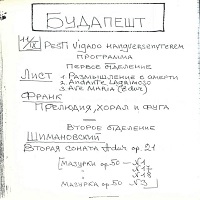 БУДАПЕШТ
11/IX PESTI VIGADO HANGVERSENYTEREM
ПРОГРАММА
ПЕРВОЕ ОТДЕЛЕНИЕ
ЛИСТ 1 РАЗМЫШЛЕНИЕ О СМЕРТИ
2 ANDANTE LAGRIMOSO
3 AVE MARIA (E dur)
ФРАНК
ПРЕЛЮДИЯ, ХОРАЛ И ФУГА
ВТОРОЕ ОТДЕЛЕНИЕ
ШИМАНОВСКИЙ
ВТОРАЯ СОНАТА A dur op. 21
МАЗУРКИ op. 50 — N 1
МАЗУРКА op. 50 N 3